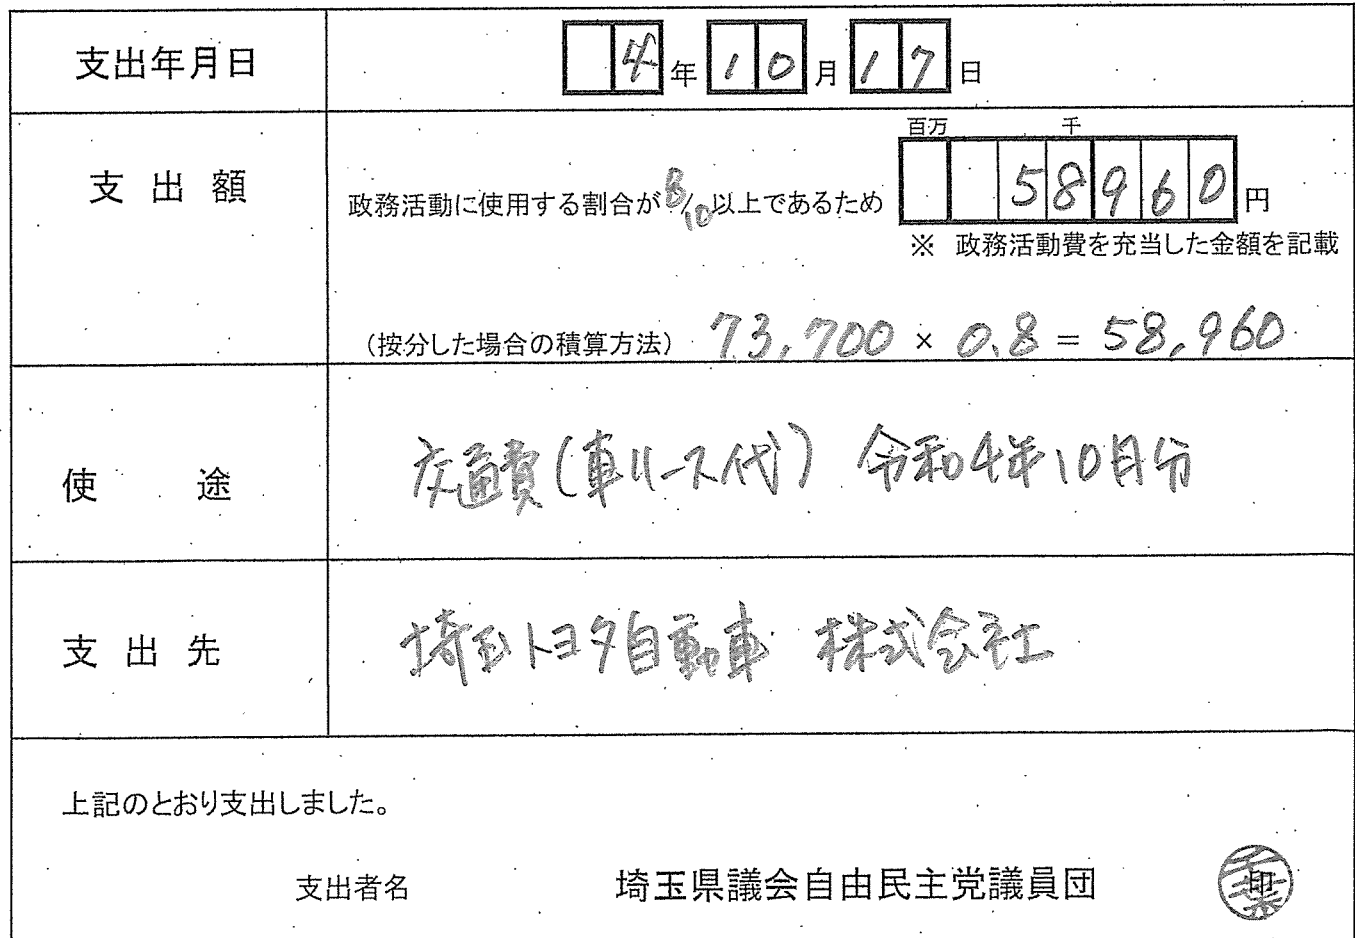 支出年月日 4年10月17日
百万 千
支出額 政務活動に使用する割合が8/10以上であるため 58960円
※ 政務活動費を充当した金額を記載
(按分した場合の積算方法) 73,700 × 0.8 = 58,960
使途 交通費(車リース代) 令和4年10月分
支出先 埼玉トヨタ自動車 株式会社
上記のとおり支出しました。
支出者名 埼玉県議会自由民主党議員団 印